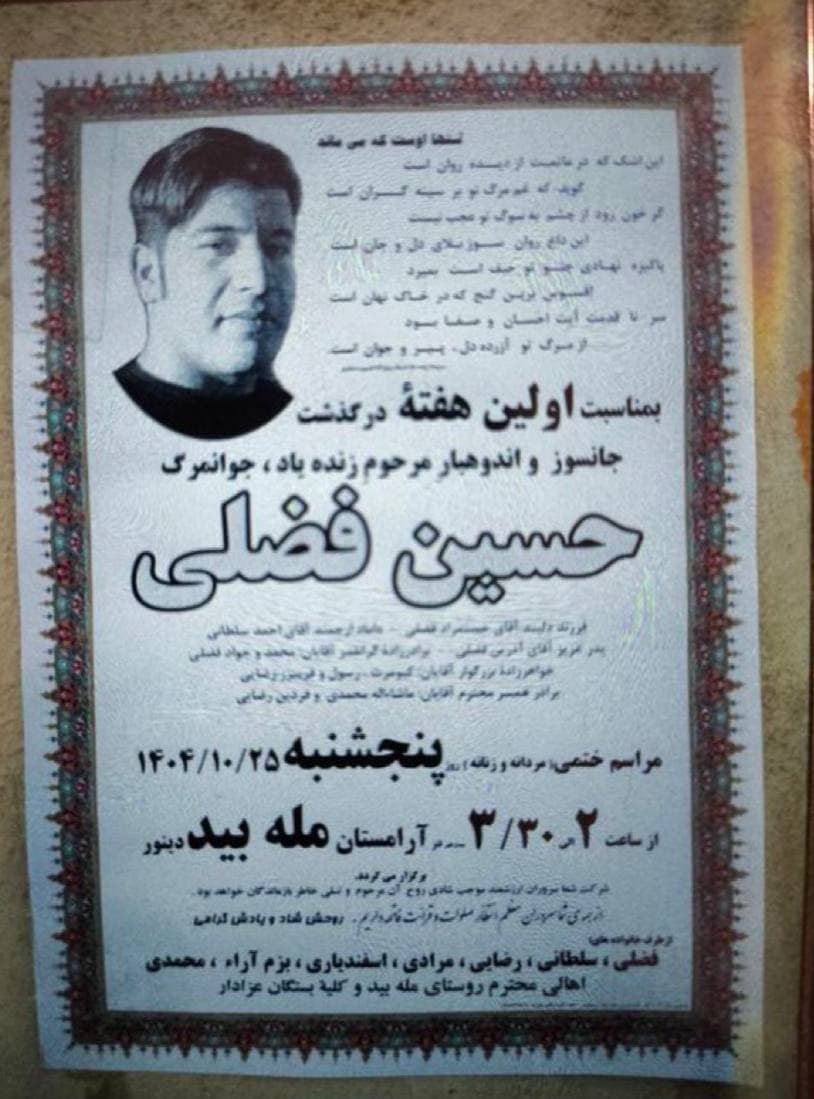 تنها اوست که می ماند
این اشک که در ماتمت از دیده روان است
گوید که غم مرگ تو بر سینه گران است
گر خون رود از چشم به سوگ تو عجب نیست
این داغ روان سوز بلای دل و جان است
پاکیزه نهادی چو تو حیف است بمیرد
افسوس ترین گنج که در خاک نهان است
سر تا قدمت آیت احسان و صفا بود
از مرگ تو آزرده دل، پیر و جوان است
بمناسبت اولین هفتهٔ درگذشت
جانسوز و اندوهبار مرحوم زنده یاد، جوانمرگ
حسین فضلی
فرزند دلبند آقای فضلی - داماد ارجمند آقای احمد سلطانی
پدر عزیز آقای فضلی - برادرزادهٔ گرانقدر آقایان: محمد و جواد فضلی
خواهرزادهٔ بزرگوار آقایان: کیومرث، رسول و فریبرز رضایی
برادر همسر محترم آقایان: ماشاءاله محمدی و فردین رضایی
مراسم ختمی( مردانه و زنانه ) روز پنجشنبه ۱۴۰۴/۱۰/۲۵
از ساعت ۲ الی ۳/۳۰ در آرامستان مله بید دینور
برگزار می گردد.
شرکت شما سروران ارزشمند موجب شادی روح آن مرحوم و تسلی خاطر بازماندگان خواهد بود.
از همه ی شما سروران معظم انتظار صلوات و قرائت فاتحه داریم. روحش شاد و یادش گرامی
از طرف خانواده های:
فضلی، سلطانی، رضایی، مرادی، اسفندیاری، بزم آراء، محمدی
اهالی محترم روستای مله بید و کلیهٔ بستگان عزادار